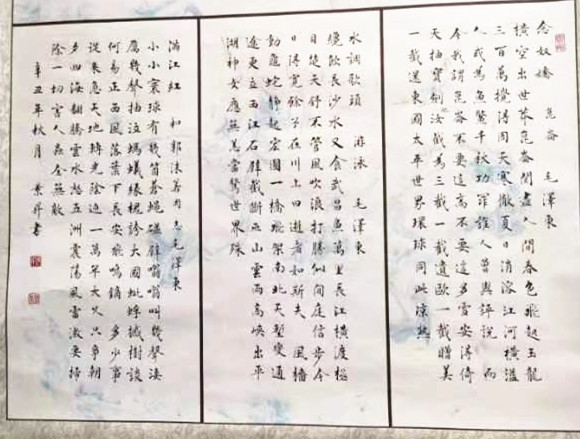 念奴嬌 崑崙 毛澤東
橫空出世莽崑崙閱盡人間春色飛起玉龍
三百萬攪得周天寒徹夏日消溶江河橫溢
人或為魚鱉千秋功罪誰人曾與評說 而
今我謂崑崙不要這高不要這多雪安得倚
天抽寶劍汝裁為三截一截遺歐一截贈美
一截還東國太平世界環球同此涼熱
水調歌頭 游泳 毛澤東
纔飲長沙水又食武昌魚萬里長江橫渡極
目楚天舒不管風吹浪打勝似閒庭信步今
日得寬餘子在川上曰逝者如斯夫 風檣
動龜蛇靜起宏圖一橋飛架南北天塹變通
途更立西江石壁截斷巫山雲雨高峽出平
湖神女應無恙當驚世界殊
滿江紅 和郭沫若同志毛澤東
小小寰球有幾箇蒼蠅碰壁嗡嗡叫幾聲淒
厲幾聲抽泣螞蟻緣槐誇大國蚍蜉撼樹談
何易正西風落葉下長安飛鳴鏑 多少事
從來急天地轉光陰迫一萬年太久只爭朝
夕四海翻騰雲水怒五洲震蕩風雷激要掃
除一切害人蟲全無敵
辛丑年秋月 昇書